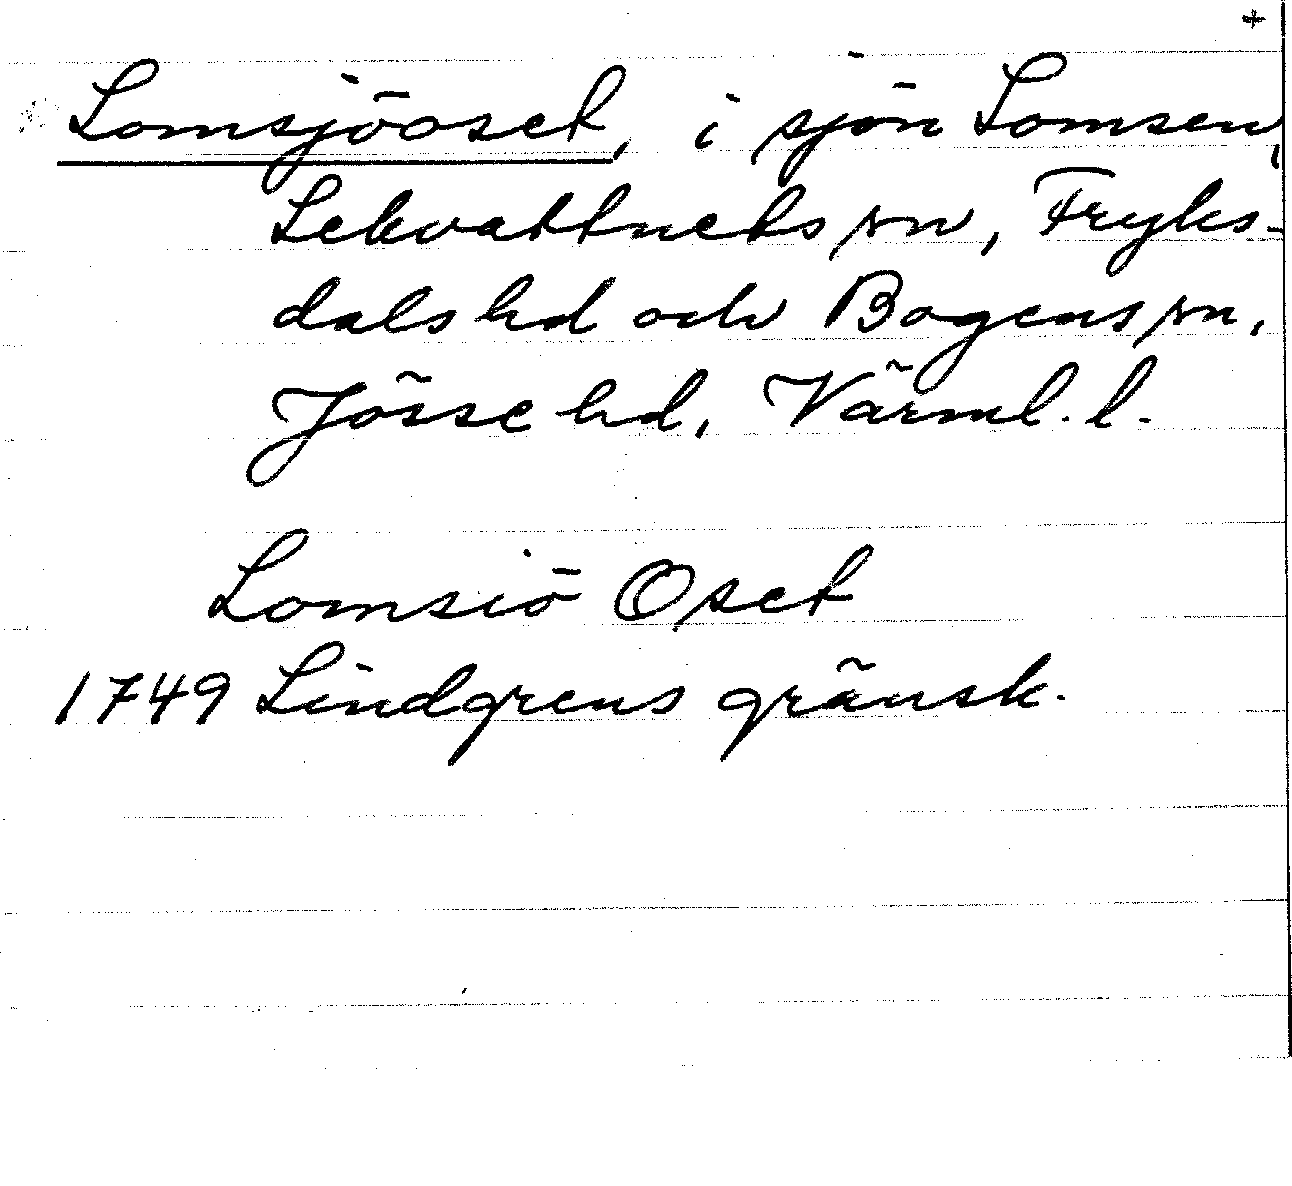 +
Lomsjöoset, i sjön Lomsen,
Lekvattnets sn, Fryks-
dals hd och Bogens sn,
Jösse hd, Värml. l.
Lomsiö Oset
1749 Lindgrens gränsk.